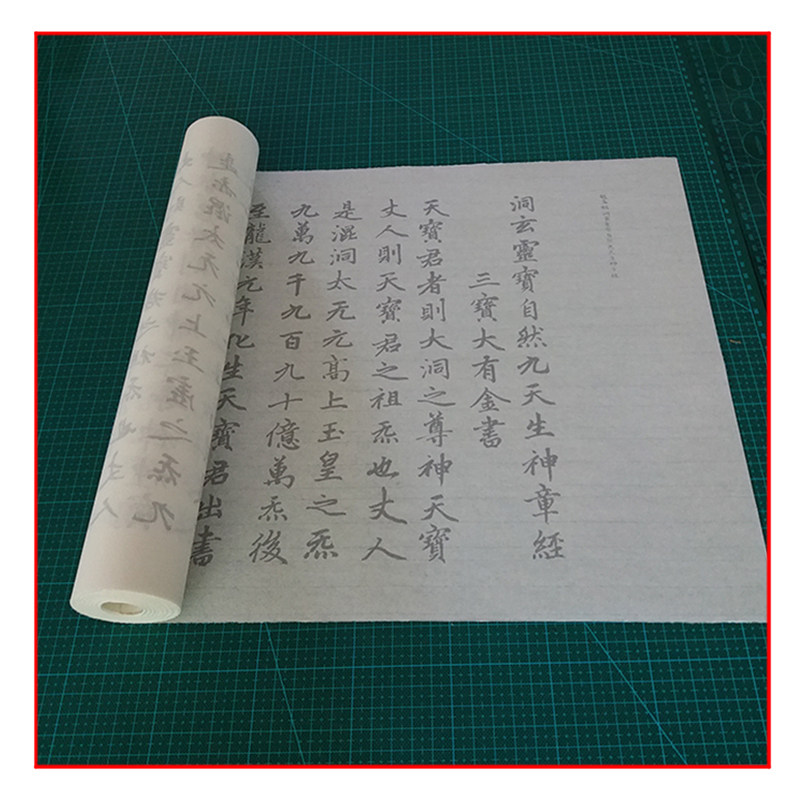 洞玄靈寶自然九天生神章經
三寶大有金書
天寶君者則大洞之尊神天寶
丈人則天寶君之祖炁也丈人
是混洞太无元高上玉皇之炁
九萬九千九百九十億萬炁後
至龍漢元年化生天寶君出書